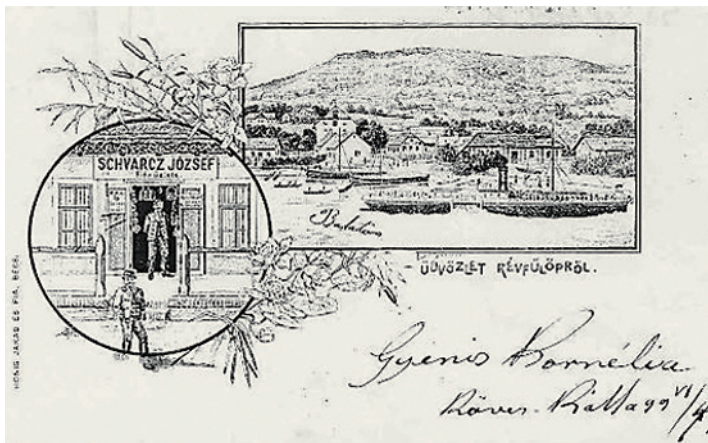 SCHVARCZ JÓZSEF
Balaton
ÜDVÖZLET RÉVFÜLÖPRŐL.
HONIG JAKAB ÉS FIA, BÉCS.
Gyenis Kornélia
Köves-Kálla 99 VI/4